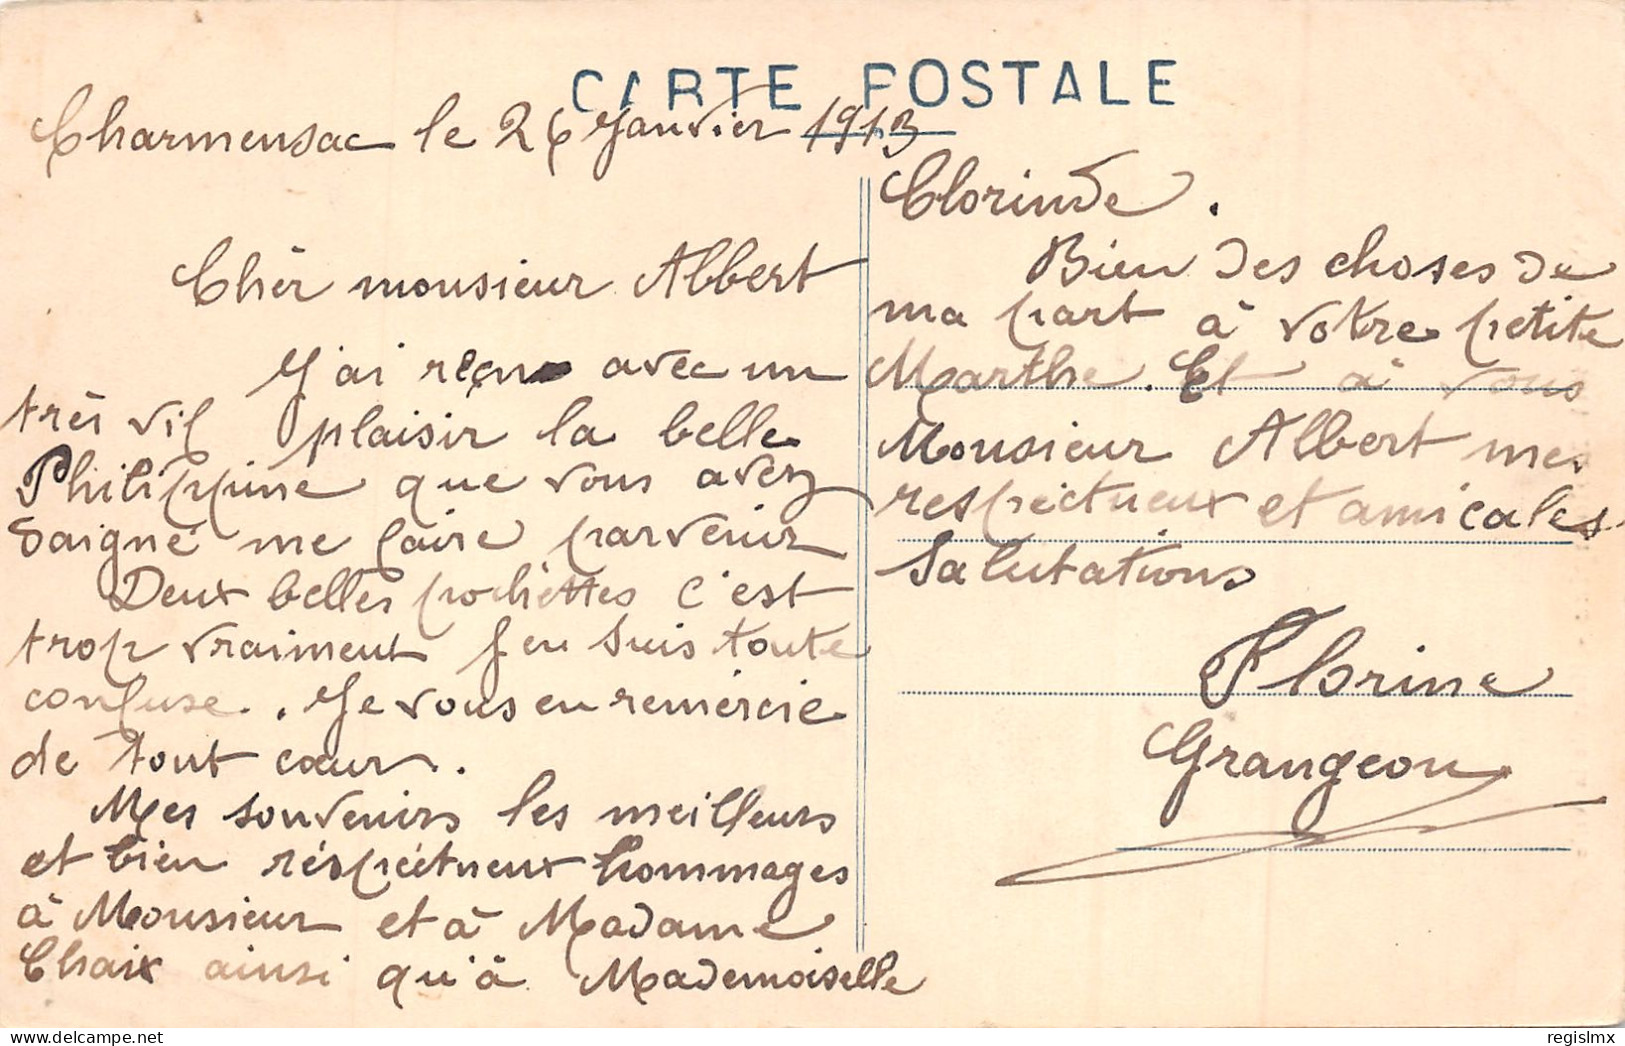 CARTE POSTALE
Charmensac le 26 Janvier 1913
Chèr monsieur Albert
J'ai reçu avec un
très vif plaisir la belle
Philippine que vous avez
daigné me faire parvenir
Deux belles pochèttes c'est
trop vraiment J'en suis toute
confuse. Je vous en remèrcie
de tout cœur.
Mes souvenirs les meilleurs
et bien réspéctueux hommages
à Monsieur et à Madame
Chaix ainsi qu'à Mademoiselle
Clorinde.
Bien des choses de
ma part à votre petite
Marthe. Et à vous
Monsieur Albert mes
respéctueux et amicales
salutations
Florine
Grangeon
regislmx